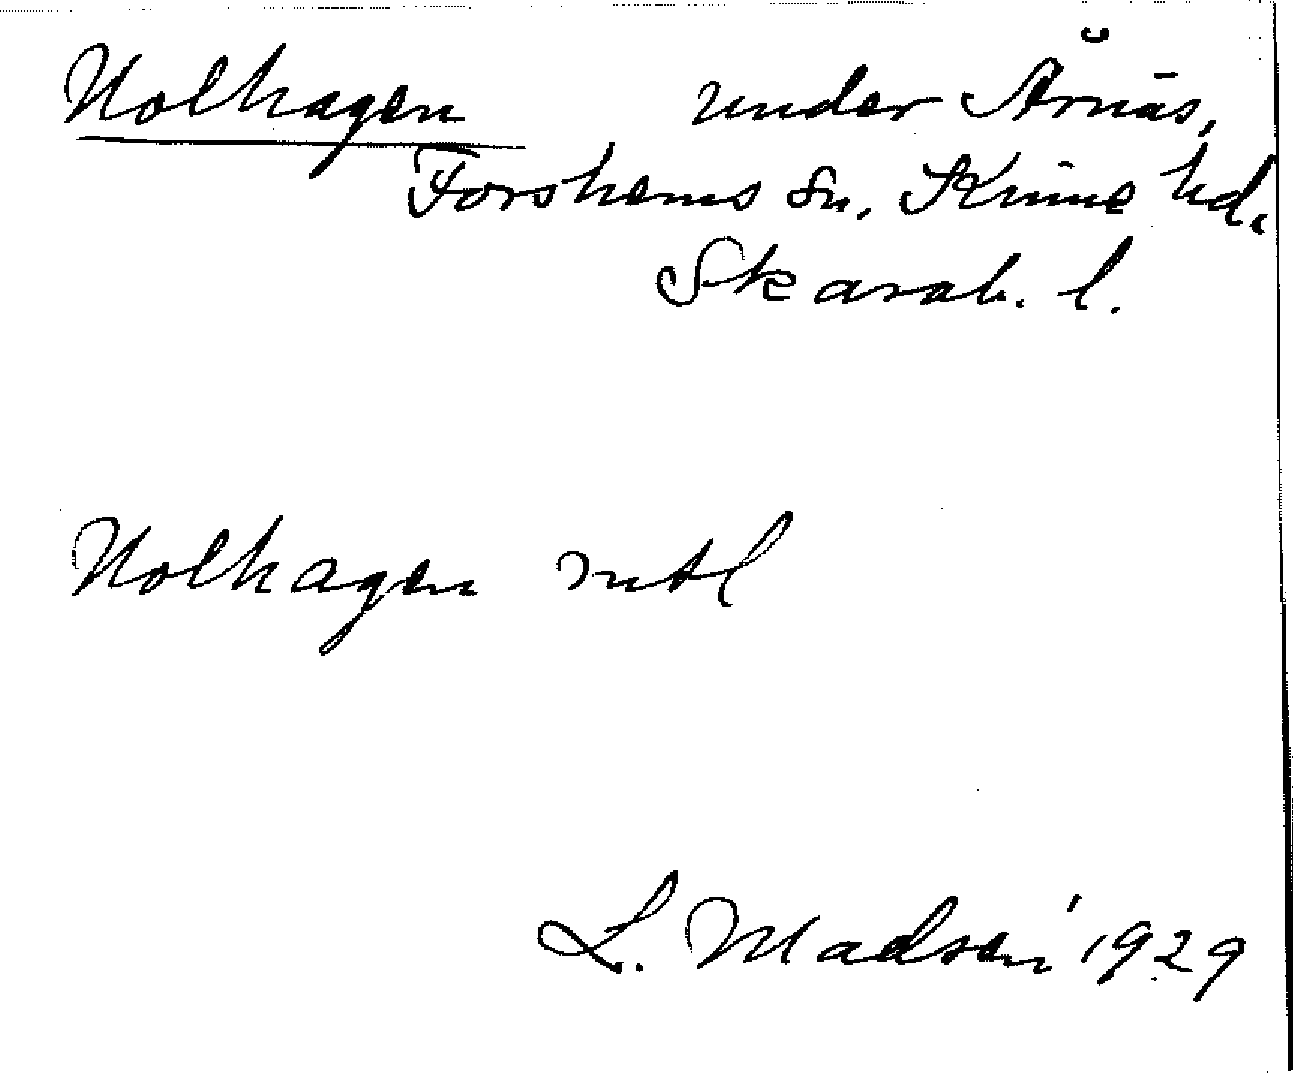 Nolhagen under Årnäs,
Forshems sn, Kinne hd.
Skarab. l.
Nolhagen mtl
L. Madsén 1929